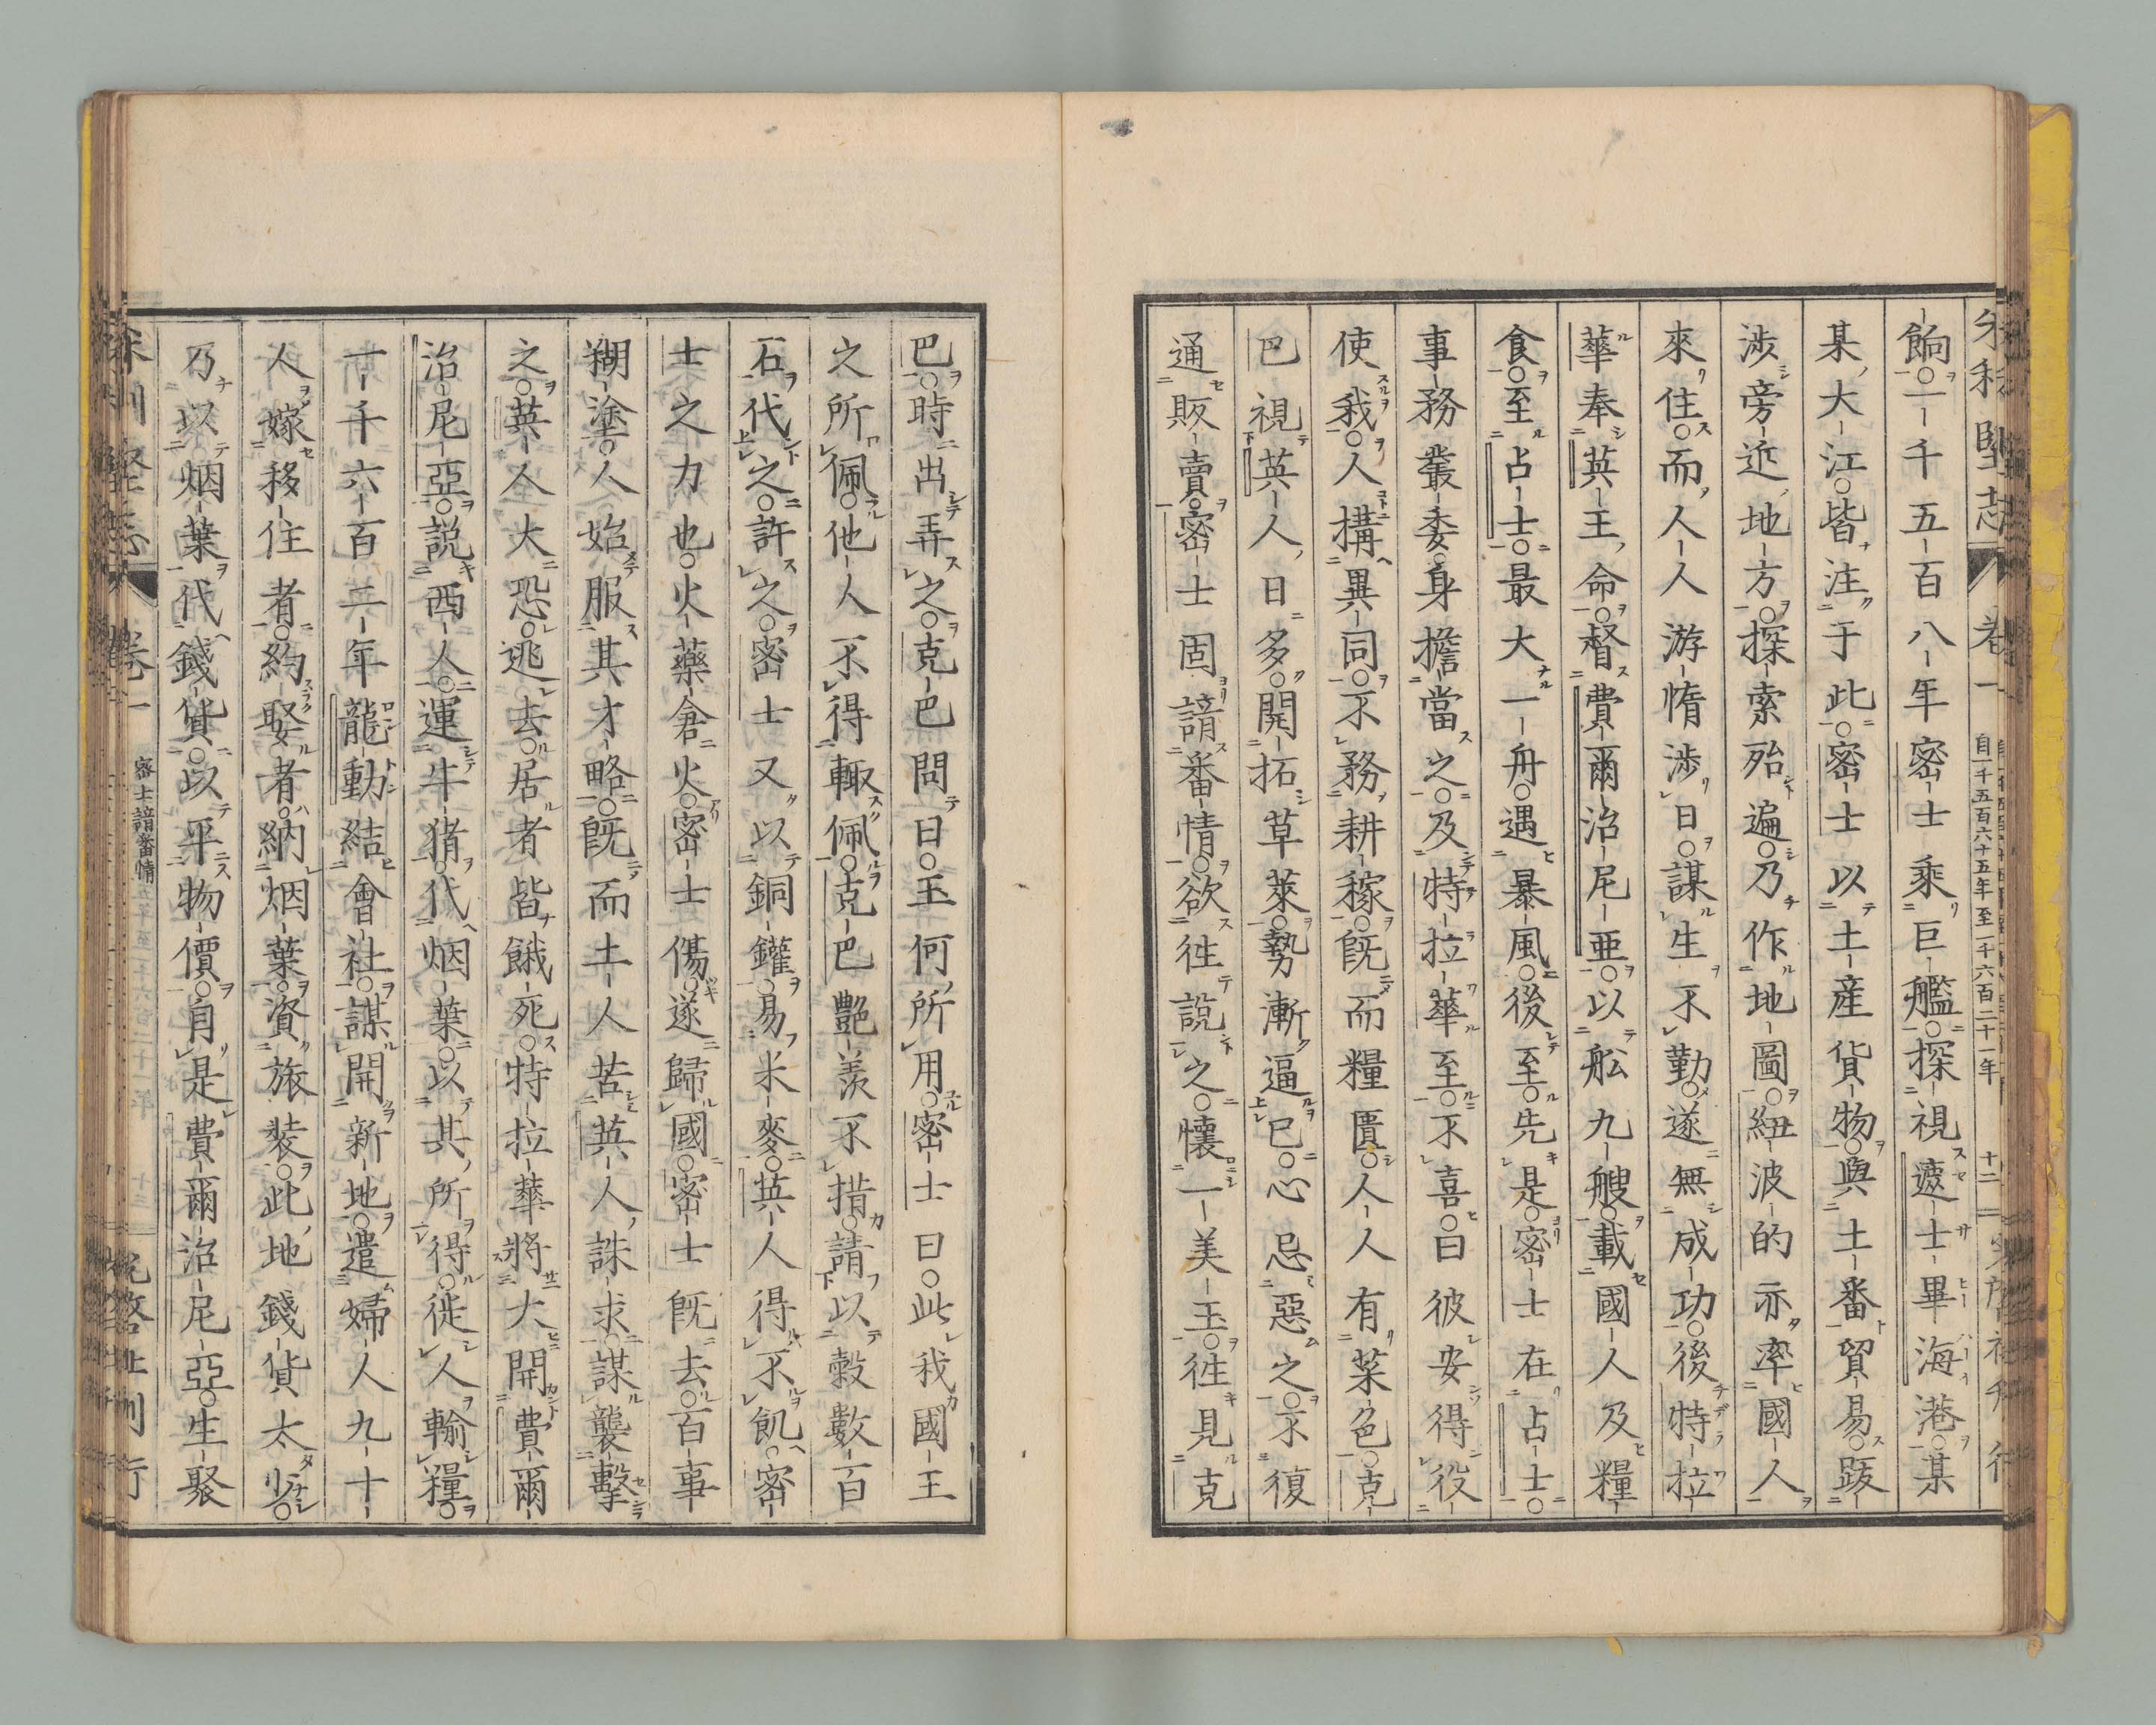 餉○一千五百八年密士乘巨艦○探視遮士畢海港○某
某大江○皆注于此○密士以土産貨物○與土番貿易○跋
涉旁近地方○探索殆遍○乃作地圖○紐波的亦率國人
來住○而人人游惰渉日○謀生不勤○遂無成功○後特拉
華奉英王命○督費爾治尼亜○以舩九艘○載國人及糧
食○至占士○最大一舟○遇暴風○後至○先是○密士在占士○
事務叢委○身擔當之○及特拉華至○不喜○曰彼安得役
使我○人構異同○不務耕稼○既而糧匱○人人有菜色○克
巴視英人日多○開拓草萊○勢漸逼己○心忌惡之○不復
通販賣○密士固諳番情○欲徃説之○懷一美玉○徃見克
巴○時出弄之○克巴問曰○玉何所用○密士曰○此我國王
之所佩○他人不得輙佩○克巴艷羨不措○請以穀數百
石代之○許之○密士又以銅鑵○易米麥○英人得不飢○密
士之力也○火藥倉火○密士傷○遂歸國○密士既去○百事
糊塗○人始服其才略○既而土人苦英人誅求○謀襲擊
之○英人大恐○逃去○居者皆餓死○特拉華將大開費爾
治尼亞○説西人○運牛猪○代烟葉○以其所得○徙人輸糧○
一千六百二年龍動結會社○謀開新地○遣婦人九十
人○嫁移住者○約娶者納烟葉○資旅裝○此地錢貨太少○
乃以烟葉代錢貨○以平物價○自是費爾治尼亞○生聚